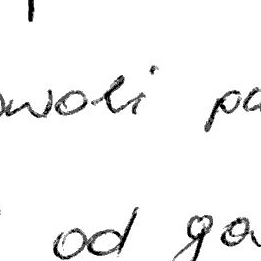 woli pa
od go